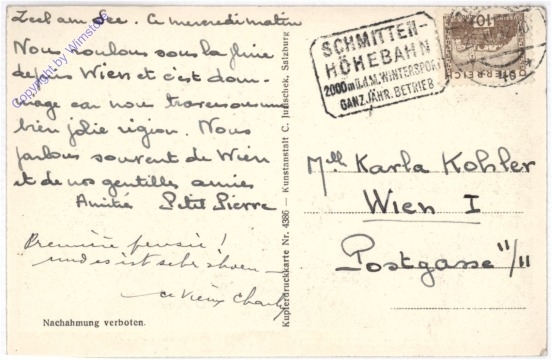 Zell am See. Ce mercredi matin
Nous roulons sous la pluie
depuis Wien et c'est dom-
mage car nous traversons une
bien jolie région. Nous
parlons souvent de Wien
et de nos gentilles amies
Amitié Petit Pierre
Première pensée!
und es ist sehr shoen
ce vieux Charly
Nachahmung verboten.
Kupferdruckkarte Nr. 4386 — Kunstanstalt C. Jurischek, Salzburg
SCHMITTEN-
HÖHEBAHN
2000m ü.d.M. WINTERSPORT
GANZJÄHR. BETRIEB
ÖSTERREICH
Mlle Karla Kohler
Wien I
Postgasse 11/11
copyright by Wimstore